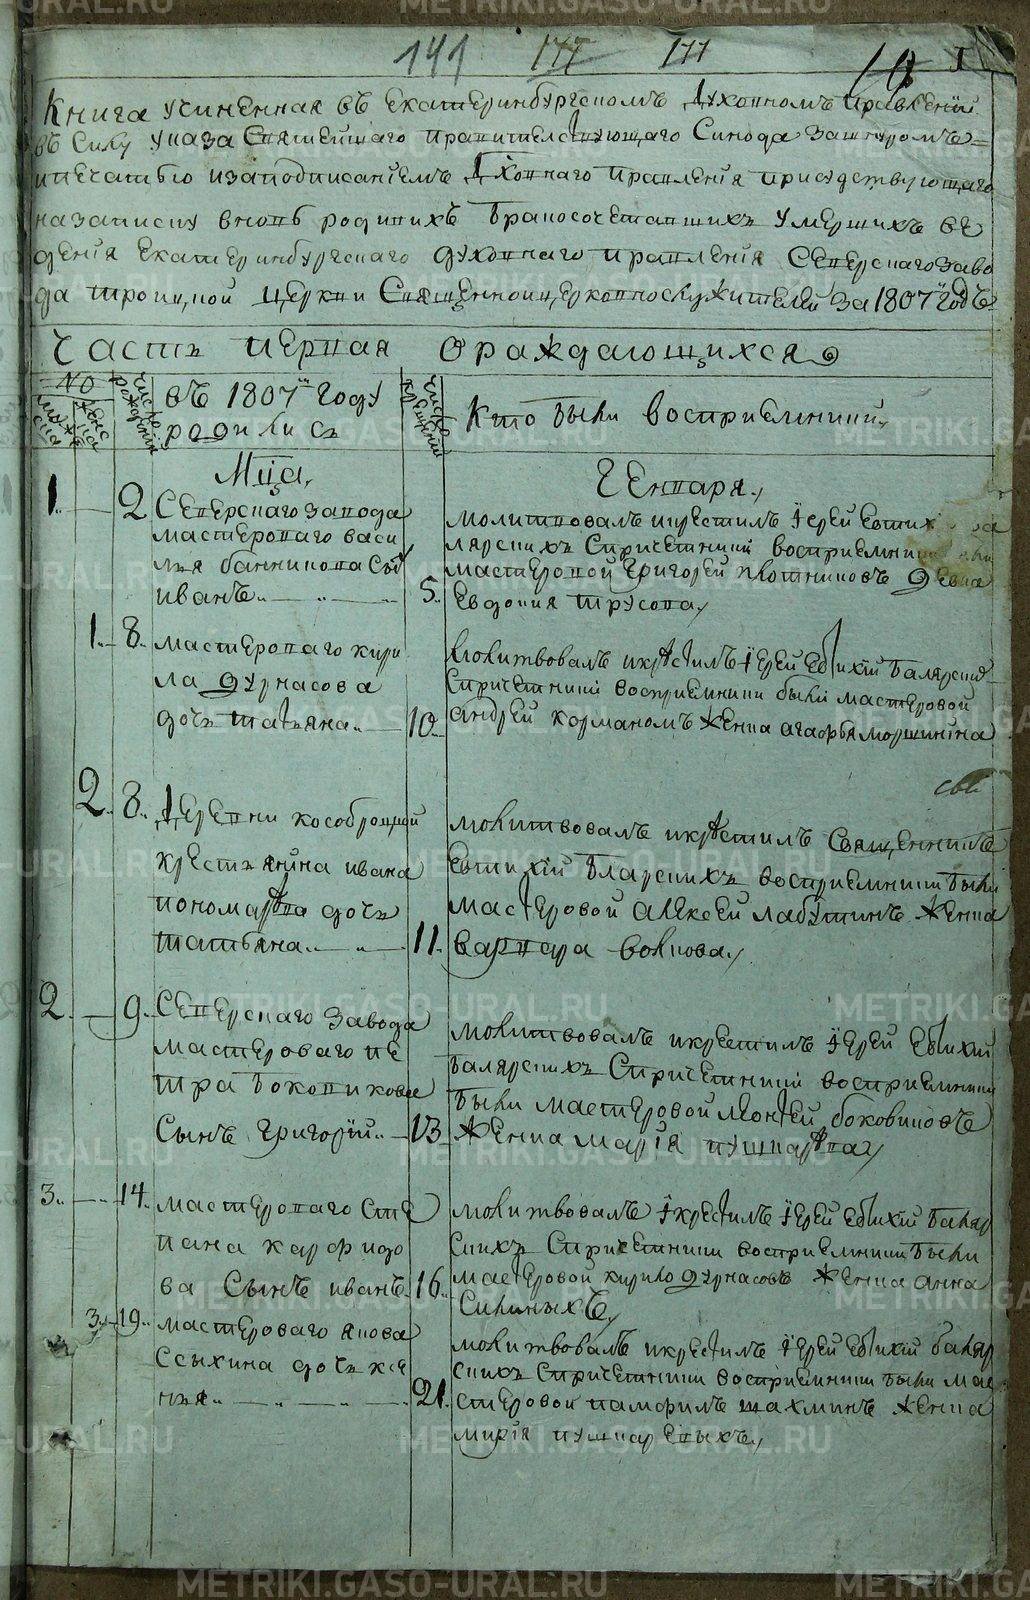 141 177 177 10 1
Книга учиненная въ Екатеринбургскомъ Духовномъ Правленiи
въ Силу указа Святейшаго правительствующаго Синода зашнуромъ
ипечатью изаподписанiемъ Дховнаго правленiя присудствующаго
назаписку вновь родшихъ бракосочетавшихъ умершихъ ве
денiя Екатеринбургскаго духовнаго правленiя Северскаго заво
да троицкой церкви Священноицерковнослужителей за 1807й Годъ
Часть первая ораждающихся
№ число рожденiя въ 1807м Году число крещенiй Кто были восприемники
мужеска женска родились
Мца Генваря
1 2 Северскаго завода
мастероваго васи
лья банникова Сын
иванъ 5
молитвовалъ икрестилъ iерей Евтих
лярскихъ Спричетники восприемники
мастеровой Григорей плотниковъ Девка
Евдокия трусова
1 8 мастероваго кири
ла Дурнасова
дочь татьяна 10
Молитвовалъ икрестилъ iерей Евтихiй балярски
Спричетники восприемники были мастеровой
андрей корманомъ Женка агафья моршинiна
2 8 Деревни кособроцкой
крестьянина ивана
пономарева дочь
татьяна 11
молитвовалъ икрестилъ Священникъ
Евтихiй бларскихъ восприемники были
мастеровой алексей лабутинъ Женка
варвара волкова
2 9 Северскаго завода
мастероваго пе
тра боковикова
Сынъ Григорiй 13
молитвовалъ икрестилъ iерей Евтихiй
балярскихъ Спричетники восприемники
были мастеровой леонтей боковиковъ
Женка марiя пушкарева
3 14 мастероваго Сте
пана карфидо
ва Сынъ иванъ 16
молитвовалъ iкрестилъ iерей Евтихiй баляр
скихъ Спричетники восприемники были
мастеровой кирило Дурнасовъ Женка анна
Силиныхъ
3 19 мастероваго якова
Ссыкина дочь ксе
нья 21
молитвовалъ икрестилъ iерей Евтихiй баляр
скихъ Спричетники восприемники были ма
стеровой памфилъ шахминъ Женка
марiя пушкаревыхъ